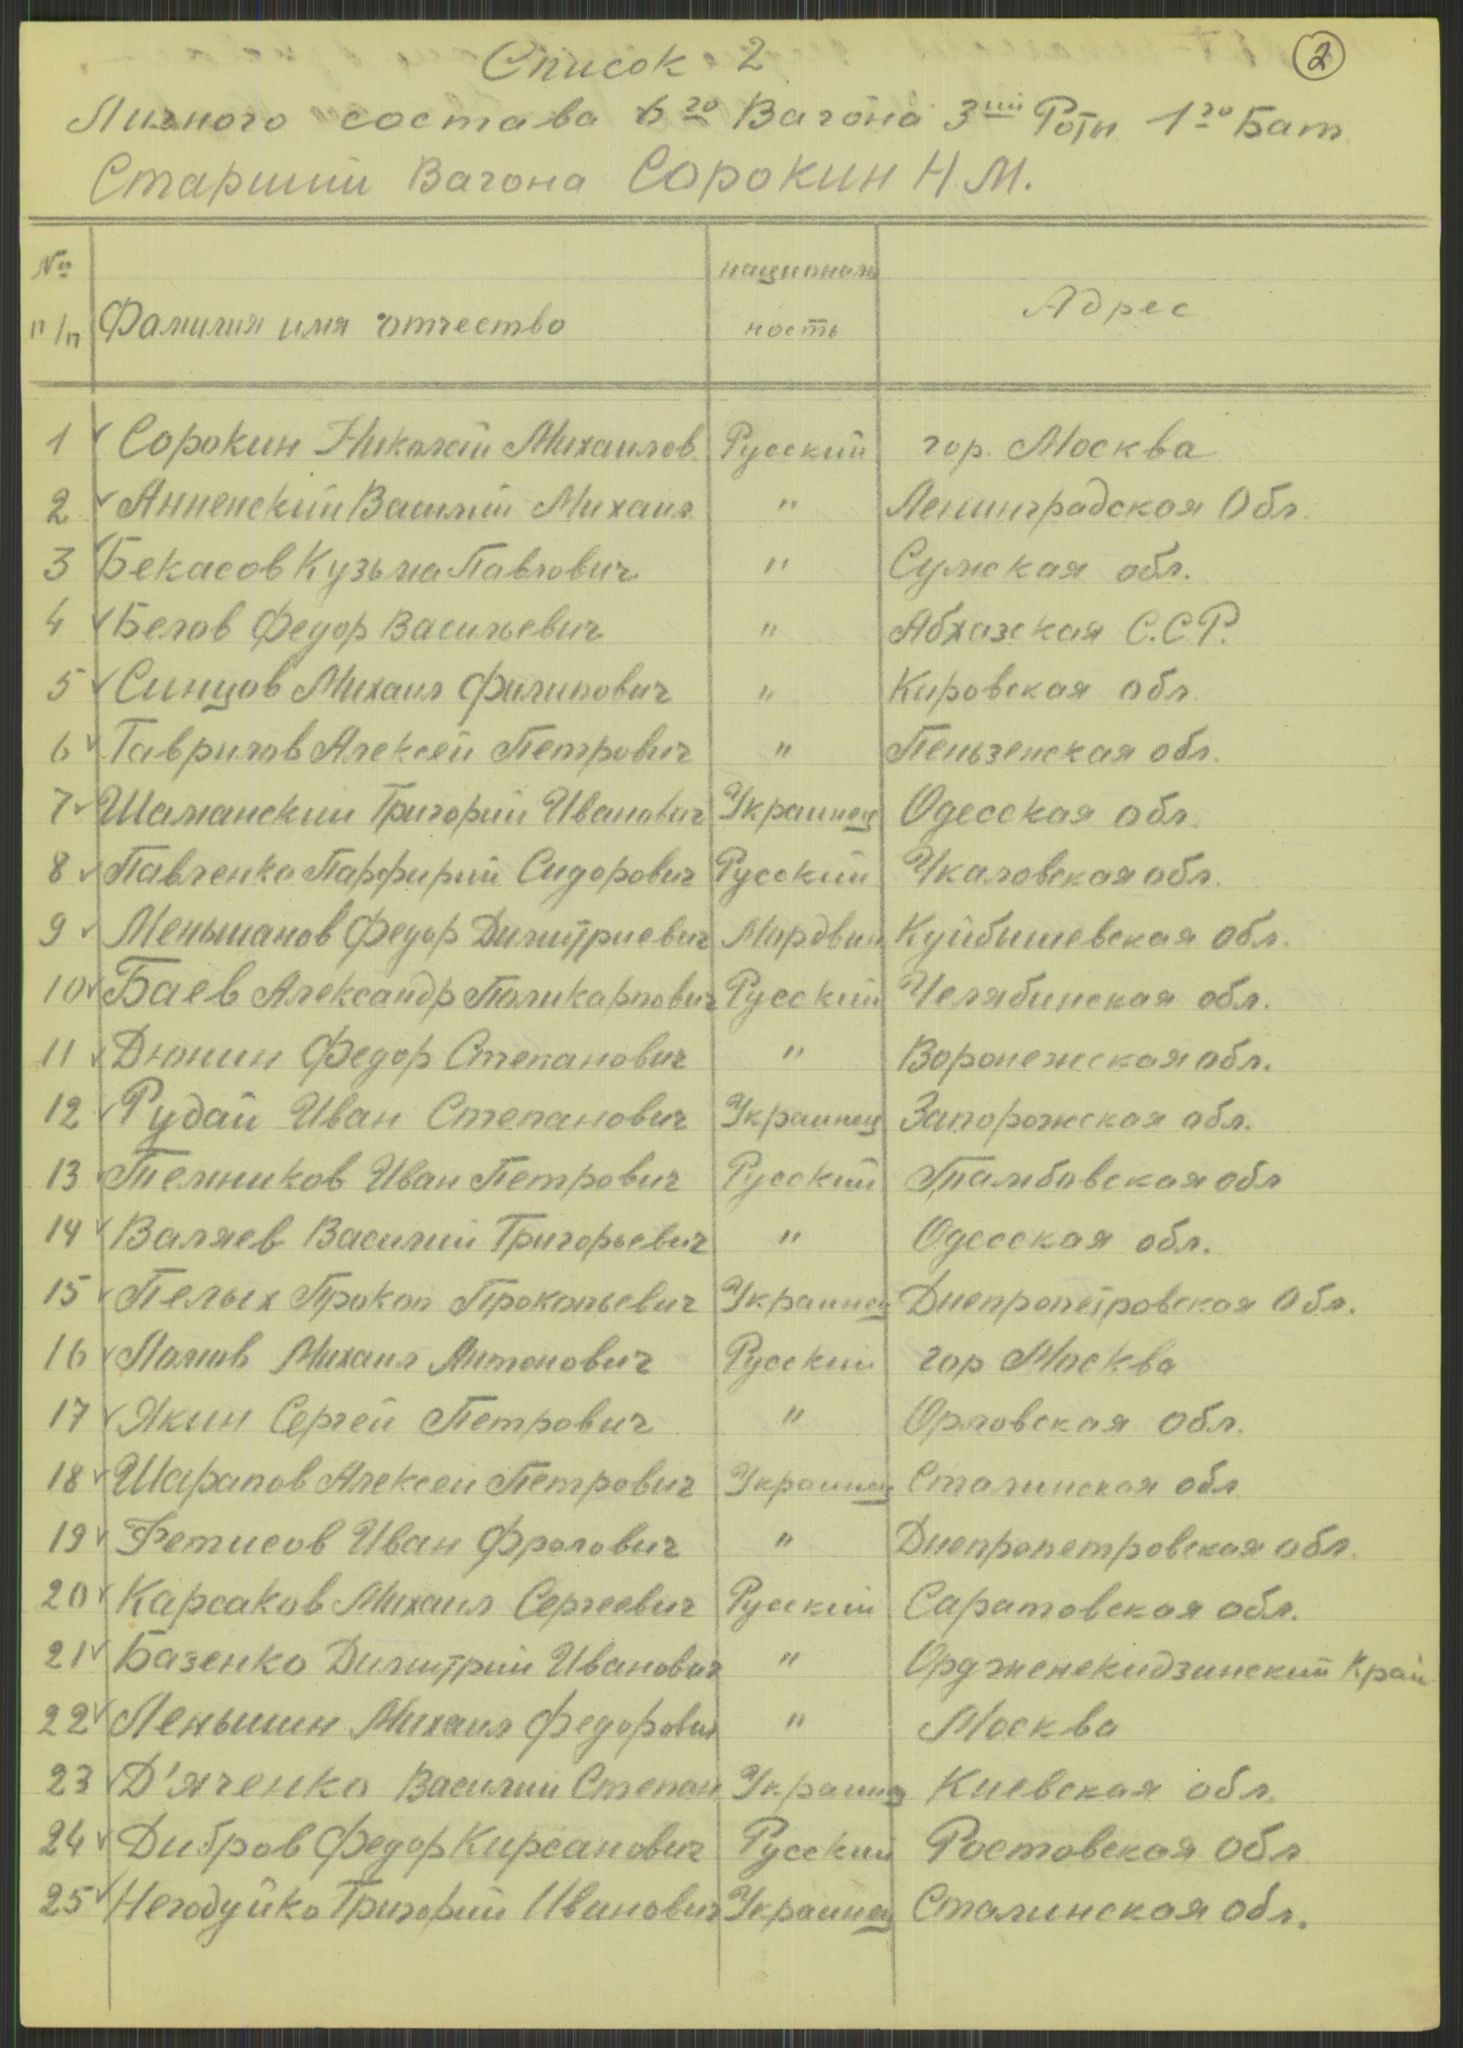 Список 2
2
Личного состава 6го Вагона 3ий Роты 1го Бат
Старший Вагона Сорокин Н.М.
№ п/п Фамилия имя отчество националь ность Адрес
1 Сорокин Николай Михаилов Русский гор. Москва
2 Анненский Василий Михаил " Ленинградская Обл.
3 Бекасов Кузьма Павлович " Сумская обл.
4 Белов Федор Васильевич " Абхазская С.С.Р.
5 Синцов Михаил Филипович " Кировская обл
6 Гаврилов Алексей Петрович " Пеньзенская обл.
7 Шаманский Григорий Иванович Украинец Одесская обл.
8 Павленко Парфирий Сидорович Русский Чкаловская обл.
9 Меньшанов Федор Димитриевич Мордвин Куйбишевская обл.
10 Баев Александр Поликарпович Русский Челябинская обл.
11 Дюнин Федор Степанович " Воронежская обл.
12 Рудай Иван Степанович Украинец Запорожская обл.
13 Темников Иван Петрович Русский Тамбовская обл
14 Валяев Василий Григорьевич " Одесская обл.
15 Пелых Прокоп Прокопьевич Украинец Днепропетровская Обл.
16 Михаил Антонович Русский гор Москва
17 Якин Сергей Петрович " Орловская обл.
18 Шарапов Алексей Петрович Украинец Сталинская обл
19 Фетисов Иван Фролович " Днепропетровская обл.
20 Карсаков Михаил Сергеевич Русский Саратовская обл.
21 Базенко Димитрий Иванович " Орджненекидзинский Край
22 Леньшин Михаил Федорович " Москва
23 Д'яченко Василий Степан Украинец Киевская обл.
24 Дибров Федор Кирсанович Русский Ростовская Обл
25 Негодуйко Григорий Иванович Украинец Сталинская обл.